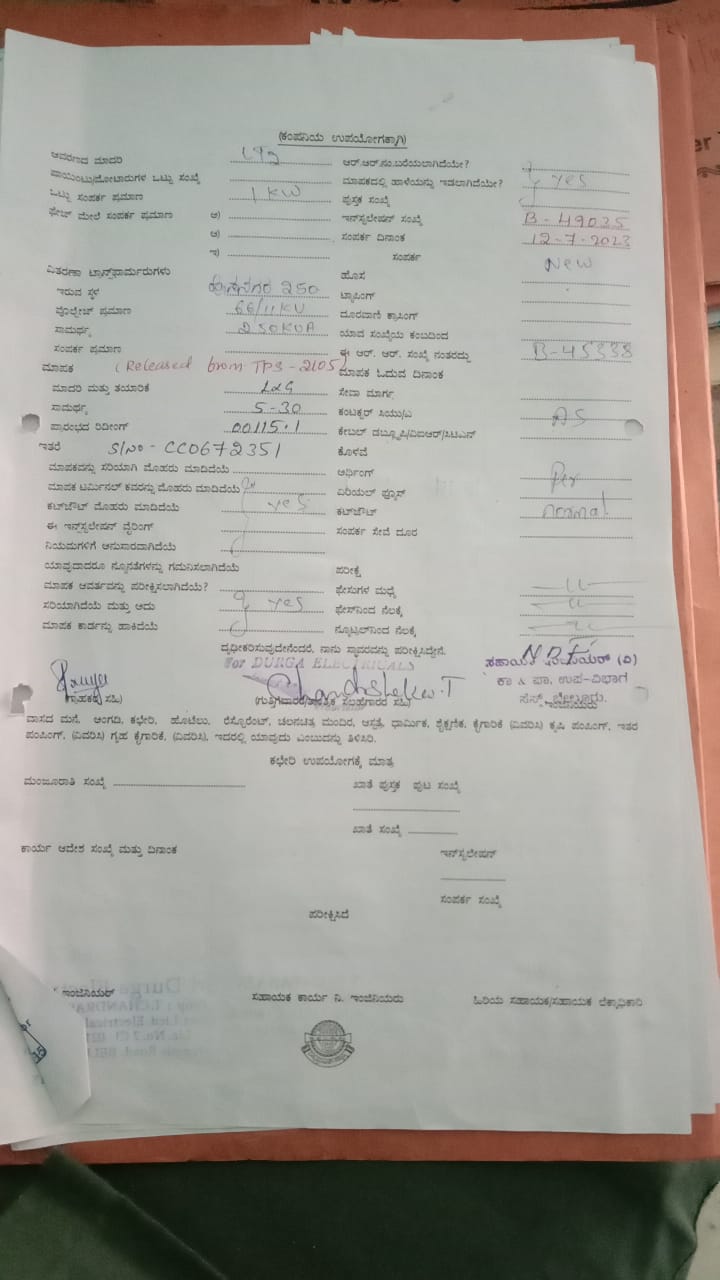 (ಕಂಪನಿಯ ಉಪಯೋಗಕ್ಕಾಗಿ)
ಆವರಣದ ಮಾದರಿ LT2 ಆರ್.ಆರ್.ನಂ.ಬರೆಯಲಾಗಿದೆಯೇ?
ಪಾಯಿಂಟು/ಮೋಟಾರುಗಳ ಒಟ್ಟು ಸಂಖ್ಯೆ ಮಾಪಕದಲ್ಲಿ ಹಾಳೆಯನ್ನು ಇಡಲಾಗಿದೆಯೇ? yes
ಒಟ್ಟು ಸಂಪರ್ಕ ಪ್ರಮಾಣ 1 KW ಪುಸ್ತಕ ಸಂಖ್ಯೆ
ಫೇಜ್ ಮೇಲೆ ಸಂಪರ್ಕ ಪ್ರಮಾಣ ಅ) ಇನ್‌ಸ್ಟಲೇಷನ್ ಸಂಖ್ಯೆ B-49025
ಆ) ಸಂಪರ್ಕ ದಿನಾಂಕ 12-7-2023
ಇ) ಸಂಪರ್ಕ New
ವಿತರಣಾ ಟ್ರಾನ್ಸ್‌ಫಾರ್ಮರುಗಳು ಹೊಸ
ಇರುವ ಸ್ಥಳ 250 ಟ್ಯಾಪಿಂಗ್
ವೋಲ್ಟೇಜ್ ಪ್ರಮಾಣ 66/11KV ದೂರವಾಣಿ ಕ್ರಾಸಿಂಗ್
ಸಾಮರ್ಥ್ಯ 250KVA ಯಾವ ಸಂಖ್ಯೆಯ ಕಂಬದಿಂದ
ಸಂಪರ್ಕ ಪ್ರಮಾಣ ಈ ಆರ್. ಆರ್. ಸಂಖ್ಯೆ ನಂತರದ್ದು B-45338
ಮಾಪಕ (Released from TPS-2105) ಮಾಪಕ ಓದುವ ದಿನಾಂಕ
ಮಾದರಿ ಮತ್ತು ತಯಾರಿಕೆ L&G ಸೇವಾ ಮಾರ್ಗ
ಸಾಮರ್ಥ್ಯ 5-30 ಕಂಟಕ್ಟರ್ ಸಿಯು/ಎ AS
ಪ್ರಾರಂಭದ ರಿಡಿಂಗ್ 00115.1 ಕೇಬಲ್ ಡಬ್ಲ್ಯೂಪಿ/ವಿಐಆರ್/ಸಿಟಿಎಸ್
ಇತರೆ S/No - CC0672351 ಕೊಳವೆ
ಮಾಪಕವನ್ನು ಸರಿಯಾಗಿ ಮೊಹರು ಮಾಡಿದೆಯೆ ಅರ್ಥಿಂಗ್ Per
ಮಾಪಕ ಟರ್ಮಿನಲ್ ಕವರನ್ನು ಮೊಹರು ಮಾಡಿದೆಯೆ ಏರಿಯಲ್ ಫ್ಯೂಸ್
ಕಟ್‌ಔಟ್ ಮೊಹರು ಮಾಡಿದೆಯೆ yes ಕಟ್‌ಔಟ್ normal
ಈ ಇನ್‌ಸ್ಟಲೇಷನ್ ವೈರಿಂಗ್ ಸಂಪರ್ಕ ಸೇವೆ ದೂರ
ನಿಯಮಗಳಿಗೆ ಅನುಸಾರವಾಗಿದೆಯೆ
ಯಾವುದಾದರೂ ನ್ಯೂನತೆಗಳನ್ನು ಗಮನಿಸಲಾಗಿದೆಯೆ ಪರೀಕ್ಷೆ
ಮಾಪಕ ಆವರ್ತವನ್ನು ಪರೀಕ್ಷಿಸಲಾಗಿದೆಯೆ? ಫೇಸುಗಳ ಮಧ್ಯೆ
ಸರಿಯಾಗಿದೆಯೆ ಮತ್ತು ಅದು yes ಫೇಸ್‌ನಿಂದ ನೆಲಕ್ಕೆ
ಮಾಪಕ ಕಾರ್ಡನ್ನು ಹಾಕಿದೆಯೆ ನ್ಯೂಟ್ರಲ್‌ನಿಂದ ನೆಲಕ್ಕೆ
ದೃಢೀಕರಿಸುವುದೇನೆಂದರೆ, ನಾನು ಸ್ಥಾವರವನ್ನು ಪರೀಕ್ಷಿಸಿದ್ದೇನೆ.
For DURGA ELECTRICALS
Chandrashekar.T
ಕಾ & ಪಾ, ಉಪ-ವಿಭಾಗ
(ಗ್ರಾಹಕರ ಸಹಿ)
ವಾಸದ ಮನೆ, ಅಂಗಡಿ, ಕಛೇರಿ, ಹೊಟೆಲು, ರೆಸ್ಟೋರೆಂಟ್, ಚಲನಚಿತ್ರ ಮಂದಿರ, ಆಸ್ಪತ್ರೆ, ಧಾರ್ಮಿಕ, ಶೈಕ್ಷಣಿಕ, ಕೈಗಾರಿಕೆ (ವಿವರಿಸಿ) ಕೃಷಿ ಪಂಪಿಂಗ್, ಇತರ
ಪಂಪಿಂಗ್, (ವಿವರಿಸಿ) ಗೃಹ ಕೈಗಾರಿಕೆ, (ವಿವರಿಸಿ). ಇದರಲ್ಲಿ ಯಾವುದು ಎಂಬುದನ್ನು ತಿಳಿಸಿರಿ.
ಕಛೇರಿ ಉಪಯೋಗಕ್ಕೆ ಮಾತ್ರ
ಮಂಜೂರಾತಿ ಸಂಖ್ಯೆ ಖಾತೆ ಪುಸ್ತಕ ಪುಟ ಸಂಖ್ಯೆ
ಖಾತೆ ಸಂಖ್ಯೆ
ಕಾರ್ಯ ಆದೇಶ ಸಂಖ್ಯೆ ಮತ್ತು ದಿನಾಂಕ ಇನ್‌ಸ್ಟಲೇಷನ್
ಸಂಪರ್ಕ ಸಂಖ್ಯೆ
ಪರೀಕ್ಷಿಸಿದೆ
ಇಂಜಿನಿಯರ್ ಸಹಾಯಕ ಕಾರ್ಯ ನಿ. ಇಂಜಿನಿಯರು ಹಿರಿಯ ಸಹಾಯಕ/ಸಹಾಯಕ ಲೆಕ್ಕಾಧಿಕಾರಿ